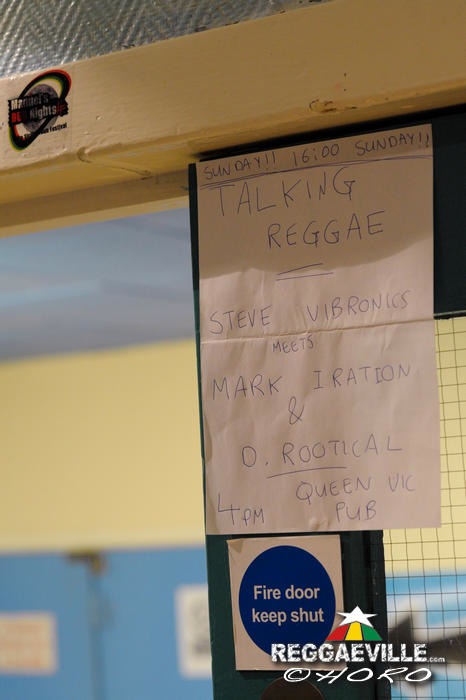 SUNDAY!! 16:00 SUNDAY!!
TALKING
REGGAE
STEVE VIBRONICS
MEETS
MARK IRATION
&
D. ROOTICAL
QUEEN VIC
4PM PUB
Fire door
keep shut
REGGAEVILLE.com
©HORO